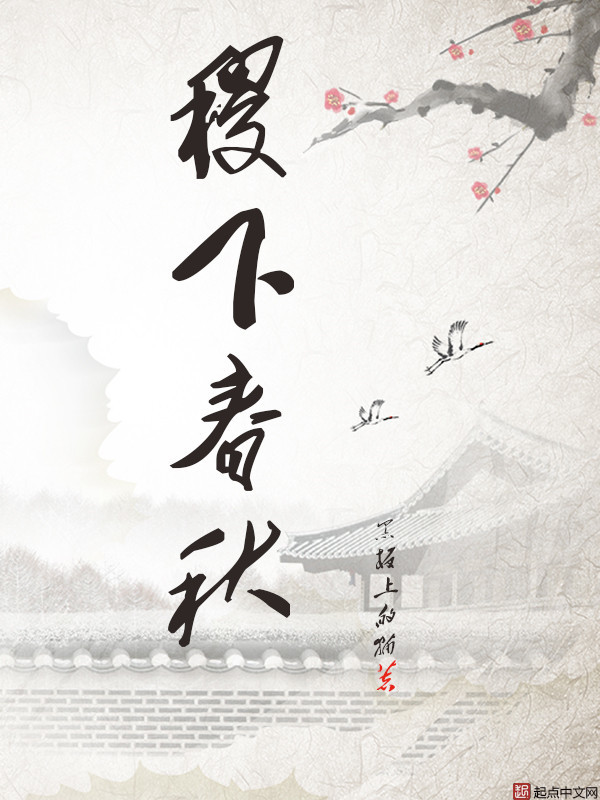 稷下春秋
黑板上的猫著
起点中文网